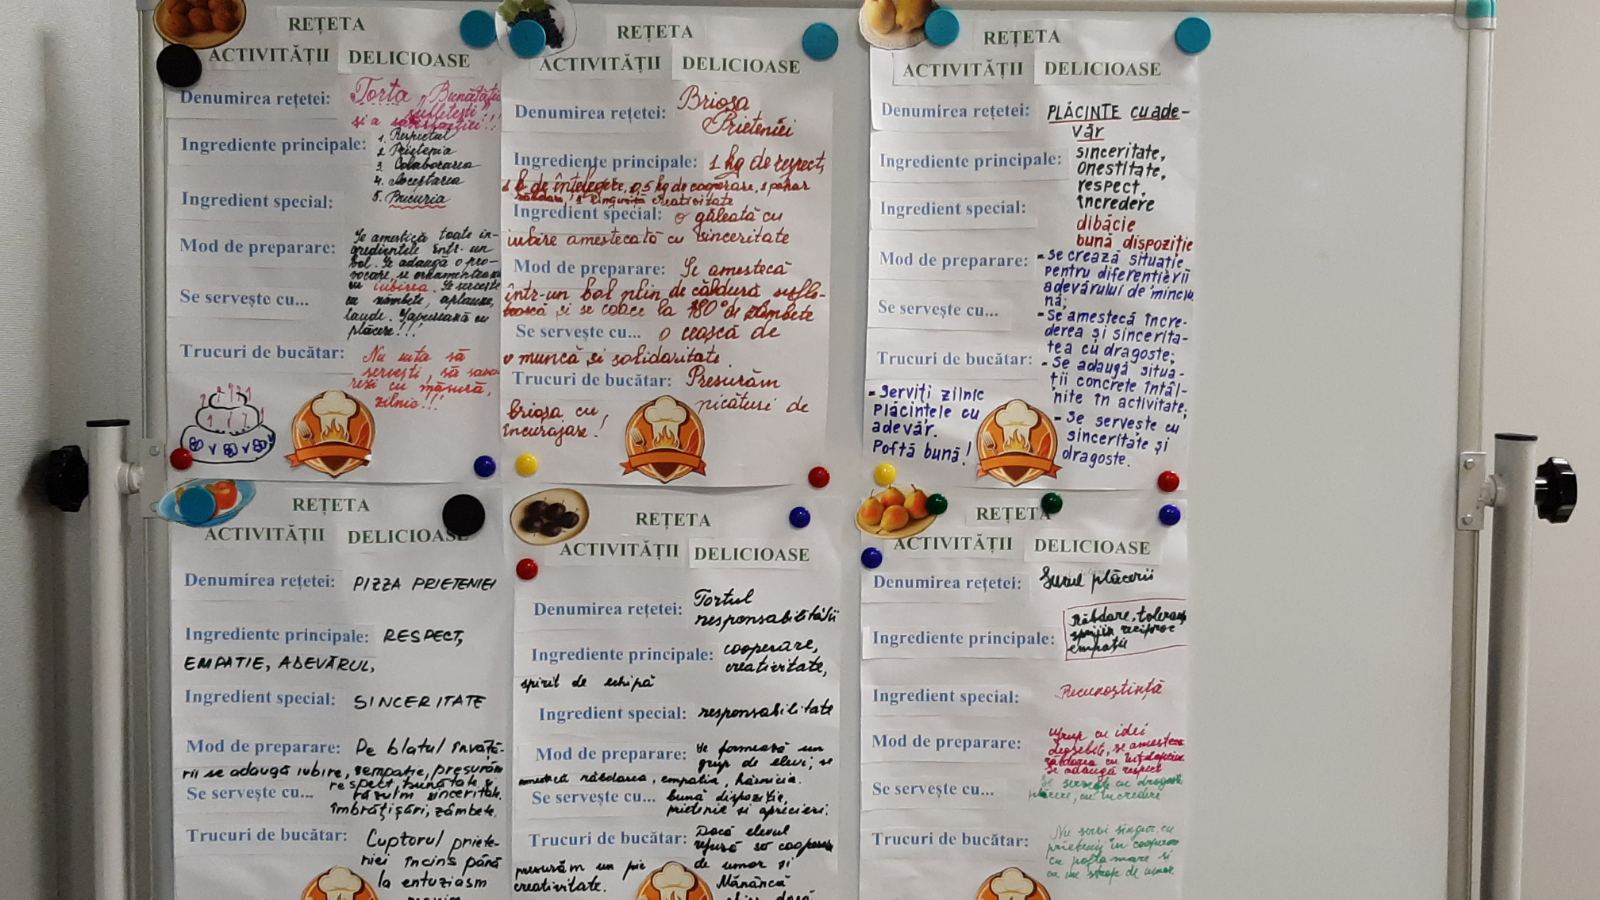 REȚETA
ACTIVITĂȚII DELICIOASE
Denumirea rețetei: Torta „Bunătății
sufletești
și a
Ingrediente principale: 1. Respectul
2. Prietenia
3. Colaborarea
4. Acceptarea
5. Bucuria
Ingredient special:
Mod de preparare: Se amestică toate in-
gredientele într-un
bol. Se adaugă o pro-
vocare, se ornamentează
cu iubirea. Se servește
Se servește cu...
cu zâmbete, aplauze,
laude. Savurează cu
plăcere!!!
Trucuri de bucătar: Nu uita să
servești, să
cu măsură,
zilnic!!!
REȚETA
ACTIVITĂȚII DELICIOASE
Denumirea rețetei: Brioșa
Prieteniei
Ingrediente principale: 1 kg de respect,
de înțelegere, 0,5 kg de cooperare, 1 pahar
răbdare, 1 linguriță creativitate
Ingredient special: o găleată cu
iubire amestecată cu sinceritate
Mod de preparare: Se amestecă
într-un bol plin de căldură sufle-
tească și se coace la 180° de zâmbete
Se servește cu... o ceașcă de
muncă și solidaritate.
Trucuri de bucătar: Presurăm
brioșa cu picături de
încurajare!
REȚETA
ACTIVITĂȚII DELICIOASE
Denumirea rețetei: PLĂCINTE cu ade-
văr
Ingrediente principale: sinceritate,
onestitate,
respect,
încredere
Ingredient special: dibăcie
bună dispoziție
Mod de preparare: - Se crează situație
pentru diferențierii
adevărului de minciu
nă;
Se servește cu...
- Se amestecă încre-
derea și sincerita-
tea cu dragoste;
Trucuri de bucătar: - Se adaugă situa-
ții concrete întâl-
nite în activitate;
- Se servește cu
sinceritate și
dragoste.
- Serviți zilnic
plăcintele cu
adevăr.
Poftă bună!
REȚETA
ACTIVITĂȚII DELICIOASE
Denumirea rețetei: PIZZA PRIETENIEI
Ingrediente principale: RESPECT,
EMPATIE, ADEVĂRUL,
Ingredient special: SINCERITATE
Mod de preparare: Pe blatul învăță-
rii se adaugă iubire, empatie, presurăm
respect, bunătate și
sinceritate.
Se servește cu...
îmbrățișări, zâmbete.
Trucuri de bucătar: Cuptorul priete-
niei încins până
la entuziasm
REȚETA
ACTIVITĂȚII DELICIOASE
Denumirea rețetei: Tortul
responsabilității
Ingrediente principale: cooperare,
creativitate,
spirit de echipă
Ingredient special: responsabilitate
Mod de preparare: Se formează un
grup de elevi; se
amestecă răbdarea, empatia, hărnicia.
Se servește cu... bună dispoziție,
prietenie și aprecieri.
Trucuri de bucătar: Dacă elevul
refuză să coopereze
presurăm un pic de umor și
creativitate. Mănâncă
REȚETA
ACTIVITĂȚII DELICIOASE
Denumirea rețetei: Sucul plăcerii
Ingrediente principale: Răbdare, toleranță
sprijin reciproc
empatie
Ingredient special: Recunoștință
Mod de preparare: Grup cu idei
deosebite, se amestecă
răbdarea cu înțelepciune
se adaugă respect
Se servește cu... Se servește cu dragoste
plăcere, cu încredere
Trucuri de bucătar: Nu sorbi singur, cu
prietenii în cooperare
cu pofta mare și
cu un strop de umor